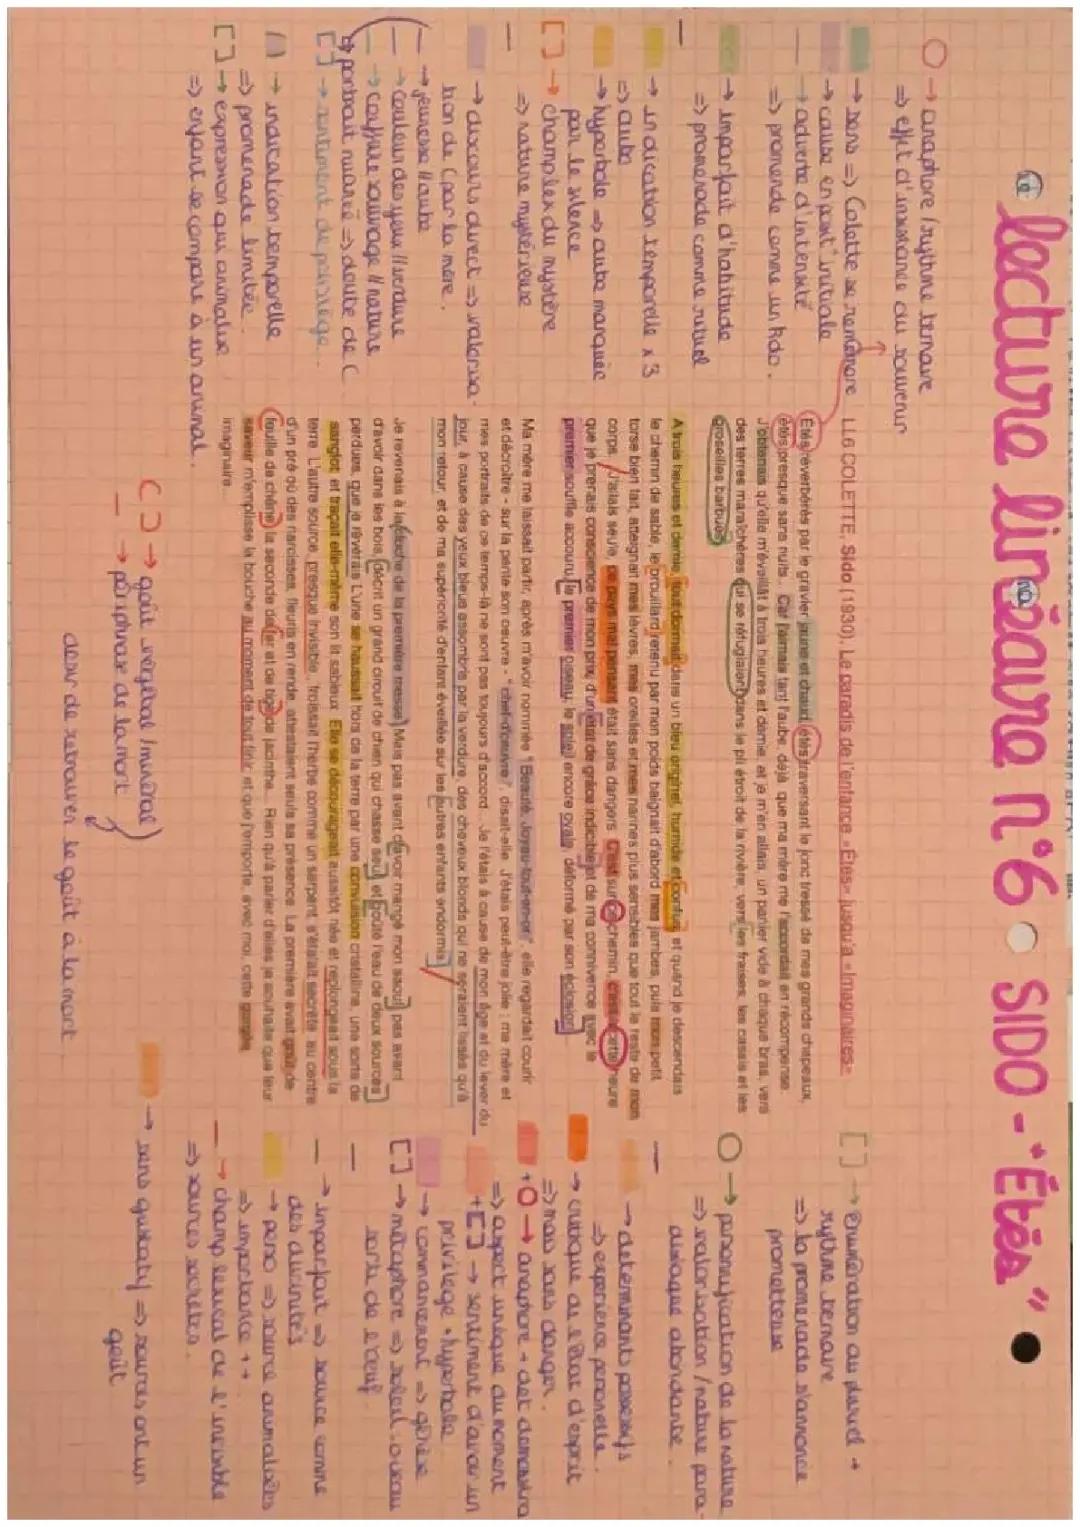 lecture linéaire n°6 SIDO - "Étés"
→ anaphore / rythme ternaire
=> effet d'insistance du souvenir
→ sens => Colette se remémore
→ cause en posit° initiale
→ adverbe d'intensité
=> promenade comme un kdo.
→ imparfait d'habitude
=> promenade comme rituel
→ indication temporelle x 3
=> aube
→ hyperbole => aube marquée
par le silence
→ champ lex du mystère
=> nature mystérieuse
→ discours direct => valorisa-
tion de C par la mère.
→ jeunesse // aube
→ couleur des yeux // verdure
→ coiffure sauvage // nature
=> portrait nuancé => doute de C
→ sentiment de privilège.
→ indication temporelle
=> promenade limitée.
→ expression qui animalise
=> enfant se compare à un animal.
LL6 COLETTE, Sido (1930), Le paradis de l'enfance «Étés» jusqu'à «Imaginaires»
Étés réverbérés par le gravier jaune et chaud, étés traversant le jonc tressé de mes grands chapeaux,
étés presque sans nuits... Car j'aimais tant l'aube, déjà, que ma mère me l'accordait en récompense.
J'obtenais qu'elle m'éveillât à trois heures et demie, et je m'en allais, un panier vide à chaque bras, vers
des terres maraîchères qui se réfugiaient dans le pli étroit de la rivière, vers les fraises, les cassis et les
groseilles barbues.
A trois heures et demie, tout dormait dans un bleu originel, humide et confus, et quand je descendais
le chemin de sable, le brouillard retenu par mon poids baignait d'abord mes jambes, puis mon petit
torse bien fait, atteignait mes lèvres, mes oreilles et mes narines plus sensibles que tout le reste de mon
corps... J'allais seule, ce pays mal pensant était sans dangers. C'est sur ce chemin, c'est à cette heure
que je prenais conscience de mon prix, d'un état de grâce indicible et de ma connivence avec le
premier souffle accouru, le premier oiseau, le soleil encore ovale, déformé par son éclosion
Ma mère me laissait partir, après m'avoir nommée "Beauté, Joyau-tout-en-or", elle regardait courir
et décroître - sur la pente son œuvre - "chef-d'œuvre", disait-elle. J'étais peut-être jolie ; ma mère et
mes portraits de ce temps-là ne sont pas toujours d'accord... Je l'étais à cause de mon âge et du lever du
jour, à cause des yeux bleus assombris par la verdure, des cheveux blonds qui ne seraient lissés qu'à
mon retour, et de ma supériorité d'enfant éveillée sur les autres enfants endormis.
Je revenais à la cloche de la première messe. Mais pas avant d'avoir mangé mon saoul, pas avant
d'avoir dans les bois, décrit un grand circuit de chien qui chasse seul, et goûté l'eau de deux sources
perdues, que je révérais. L'une se haussait hors de la terre par une convulsion cristalline, une sorte de
sanglot, et traçait elle-même son lit sableux. Elle se décourageait aussitôt née et replongeait sous la
terre. L'autre source, presque invisible, froissait l'herbe comme un serpent, s'étalait secrète au centre
d'un pré où des narcisses, fleuris en ronde, attestaient seuls sa présence. La première avait goût de
feuille de chêne, la seconde de fer et de tige de jacinthe... Rien qu'à parler d'elles je souhaite que leur
saveur m'emplisse la bouche au moment de tout finir, et que j'emporte, avec moi, cette gorgée
imaginaire...
→ énumération au pluriel +
rythme ternaire
=> la promenade s'annonce
prometteuse
→ personnification de la nature
=> valorisation / nature para-
disiaque abondante.
→ déterminants possessifs
=> expérience personnelle.
→ critique de l'état d'esprit
=> mais sans danger.
+ O → anaphore + det démonstra
=> aspect unique du moment
+ [] → sentiment d'avoir un
privilège + hyperbole
→ commencement => génèse
[] → métaphore => soleil : oiseau
sorti de l'oeuf.
→ imparfait => source comme
des divinités
→ perso => source animalisées
=> importance ++.
→ champ lexical de l'invisible
=> sources secrètes.
[] → goût végétal / minéral
→ périphrase de la mort
désir de retrouver le goût à la mort
→ sens gustatif => sources ont un
goût